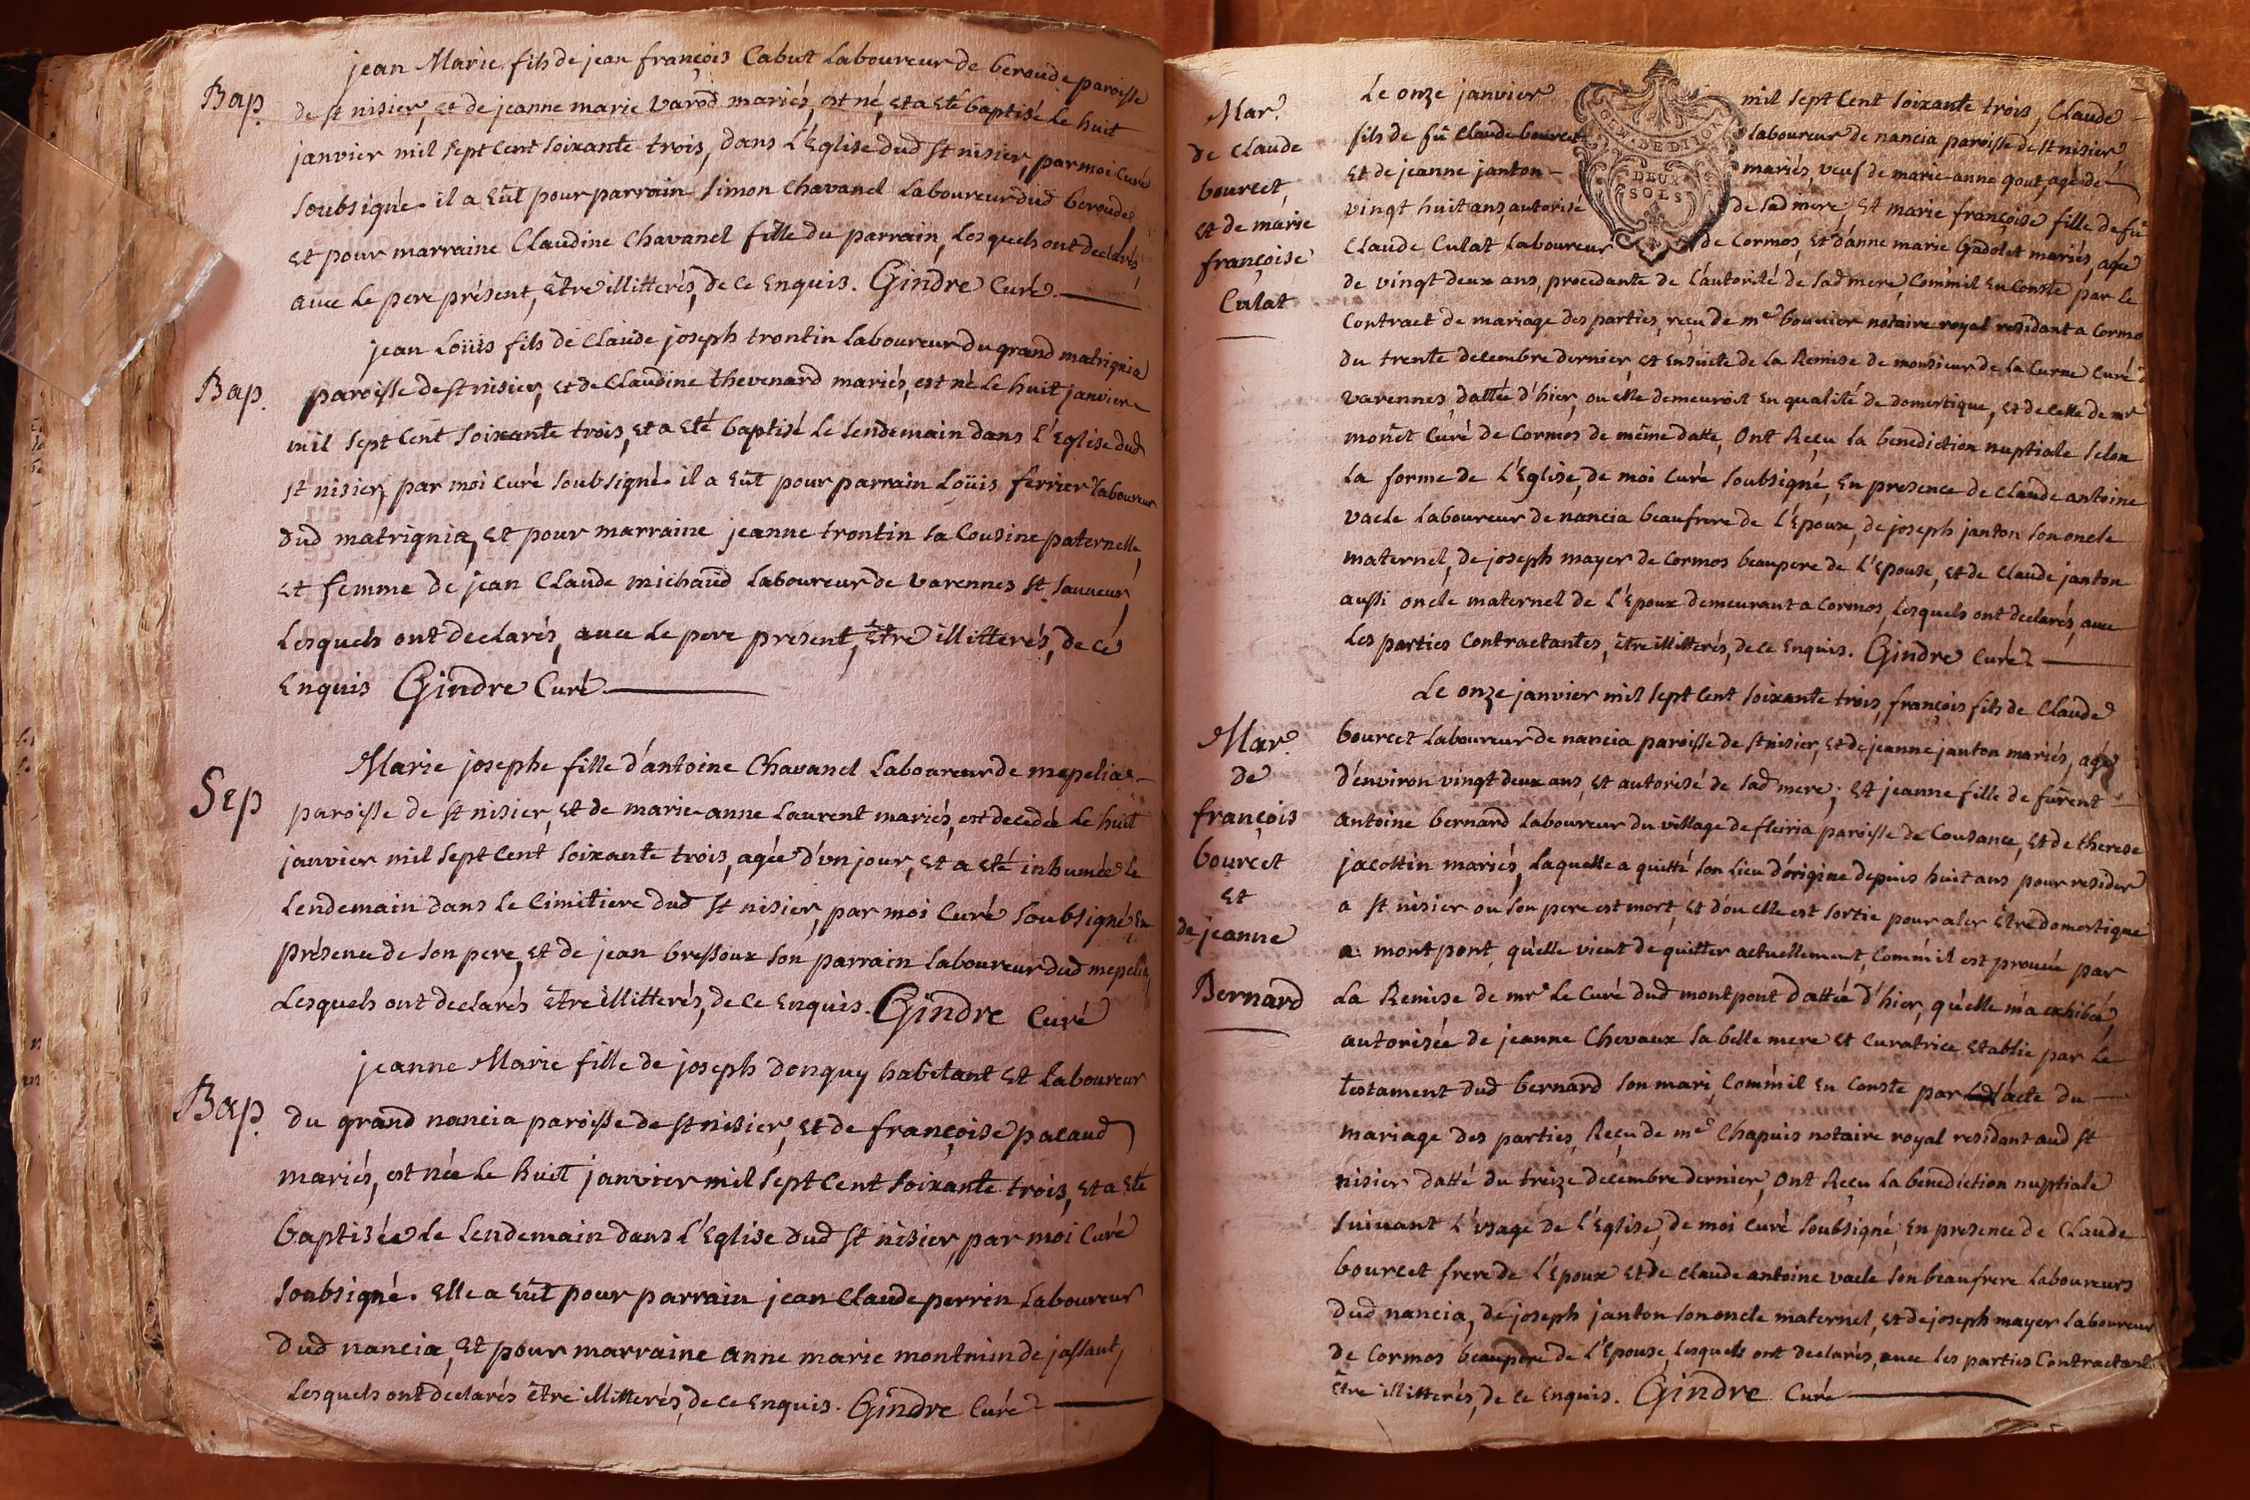 Bap.
jean Marie fils de jean françois Cabut Laboureur de beroude paroisse
de st nisier, et de jeanne marie varod mariés, est né, et a eté baptisé Le huit
janvier mil sept Cent soixante trois, dans L'Eglise dud st nisier, par moi Curé
soubsigné. il a eût pour parrain simon Chavanel Laboureur dud beroude,
et pour marraine Claudine Chavanel fille du parrain, Lesquels ont declarés,
avec Le pere présent, être illitterés, de ce enquis. Gindre Curé
Bap.
jean Loüis fils de Claude joseph trontin Laboureur du grand matrignia
paroisse de st nisier, et de Claudine thevenard mariés, est né le huit janvier
mil sept Cent soixante trois, et a eté baptisé Le Lendemain dans L'Eglise dud
st nisier, par moi Curé soubsigné. il a eût pour parrain Loüis ferrier Laboureur
dud matrignia, et pour marraine jeanne trontin sa Cousine paternelle,
et femme de jean Claude michaud Laboureur de varennes st. sauveur,
Lesquels ont declarés, avec Le pere present, être illitterés, de ce
Enquis Gindre Curé
Sep
Marie josephe fille d'antoine Chavanel Laboureur de mepelia
paroisse de st nisier, et de marie anne Laurent mariés, est decedée Le huit
janvier mil sept Cent soixante trois, agée d'un jour, et a eté inhumée le
Lendemain dans Le Cimitiere dud st nisier, par moi Curé soubsigné en
présence de son pere, et de jean bressoux son parrain Laboureur dud mepelia,
Lesquels ont declarés être illitterés, de ce enquis. Gindre Curé
Bap.
jeanne Marie fille de joseph donguy habitant et Laboureur
du grand nancia paroisse de st nisier, et de françoise pacaud
mariés, est née Le huit janvier mil sept Cent soixante trois, et a eté
baptisée Le Lendemain dans L'Eglise dud st nisier, par moi Curé
soubsigné. Elle a eût pour parrain jean Claude perrin Laboureur
dud nancia, et pour marraine anne marie montnin de jassaut,
Lesquels ont déclarés être illitterés, de ce enquis. Gindre Curé
Mar.
de Claude
bourcet
et de marie
françoise
Culat
GEN. DE DIJON
DEUX
SOLS
Le onze janvier mil sept Cent soixante trois, Claude
fils de fû Claude bourcet laboureur de nancia paroisse de st nisier
Et de jeanne janton mariés, veuf de marie anne gout, agé de
vingt huit ans, autorisé de sad mere, et marie françoise fille de fû
Claude Culat Laboureur de Cormos, et d'anne marie Gadolet mariés, agée
de vingt deux ans, procedante de L'autorité de sad mere, Comm'il en Conste par le
Contract de mariage des parties, reçu de me bouvier notaire royal residant a Cormo
du trente decembre dernier, et ensuite de La Remise de monsieur de La Curne Curé d
varennes, dattée d'hier, ou elle demeuroit en qualité de domestique, et de celle de mr
monet Curé de Cormos de même datte, Ont Reçu La benediction nuptiale selon
La forme de L'Eglise, de moi Curé soubsigné, en presence de Claude antoine
vacle Laboureur de nancia beaufrere de L'Epoux, de joseph janton son oncle
maternel, de joseph mayer de Cormos beaupere de L'Epouse, et de Claude janton
aussi oncle maternel de L'Epoux demeurant a Cormos, Lesquels ont declarés, avec
Les parties Contractantes, être illitterés, de ce enquis. Gindre Curé
Mar.
de
françois
bourcet
et
de jeanne
Bernard
Le onze janvier mil sept Cent soixante trois, françois fils de Claude
bourcet Laboureur de nancia paroisse de st nisier, et de jeanne janton mariés, agé
d'environ vingt deux ans, et autorisé de sad mere; et jeanne fille de furent
antoine bernard Laboureur du village de fleiria paroisse de Cousance, et de therese
jacottin mariés, Laquelle a quitté son Lieu d'origine depuis huit ans pour resider
a st nisier ou son pere est mort, et d'ou elle est sortie pour aler être domestique
a montpont, qu'elle vient de quitter actuellement, Comm'il est prouvée par
La Remise de mr. Le Curé dud montpont dattée d'hier, qu'elle m'a exhibée,
autorisée de jeanne Chevaux sa belle mere et Curatrice Etablie par Le
testament dud bernard son mari, Comm'il en Conste par L'acte du
mariage des parties, Reçu de me Chapuis notaire royal residant aud st
nisier datté du treize decembre dernier, Ont Reçu La benediction nuptiale
suivant L'usage de L'Eglise, de moi Curé soubsigné, en presence de Claude
bourcet frere de L'Epoux et de Claude antoine vacle son beaufrere Laboureurs
dud nancia, de joseph janton son oncle maternel, et de joseph mayer Laboureur
de Cormos beaupere de L'Epouse, Lesquels ont declarés, avec Les parties Contractant
être illitterés, de ce enquis. Gindre Curé